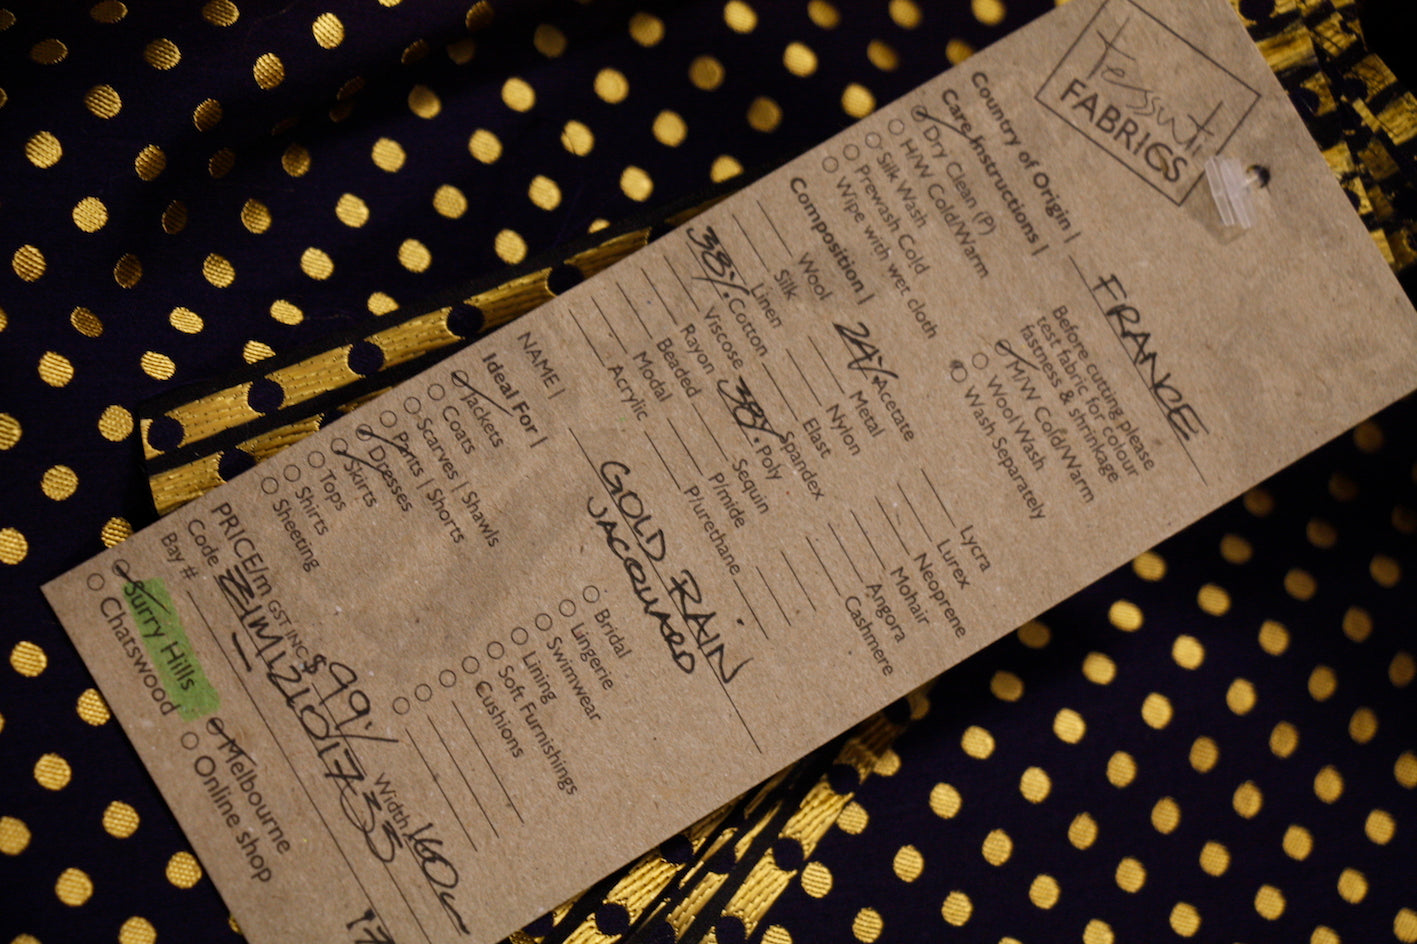 tessuti
FABRICS
Country of Origin | FRANCE
Care Instructions |
Before cutting please
test fabric for colour
fastness & shrinkage
Dry Clean (P)
H/W Cold/Warm
Silk Wash
Prewash Cold
Wipe with wet cloth
M/W Cold/Warm
Wool Wash
Wash Separately
Composition |
Wool
Silk
Linen
38% Cotton
Viscose
Rayon
Beaded
Modal
Acrylic
24% Acetate
Metal
Nylon
Elast
Spandex
38% Poly
Sequin
P/mide
P/urethane
Lycra
Lurex
Neoprene
Mohair
Angora
Cashmere
NAME | GOLD RAIN
JACQUARD
Ideal For |
Jackets
Coats
Scarves | Shawls
Pants | Shorts
Dresses
Skirts
Tops
Shirts
Sheeting
Bridal
Lingerie
Swimwear
Lining
Soft Furnishings
Cushions
PRICE/m GST INC $99./ Width 160cm
Code
Bay #
Surry Hills
Chatswood
Melbourne
Online shop